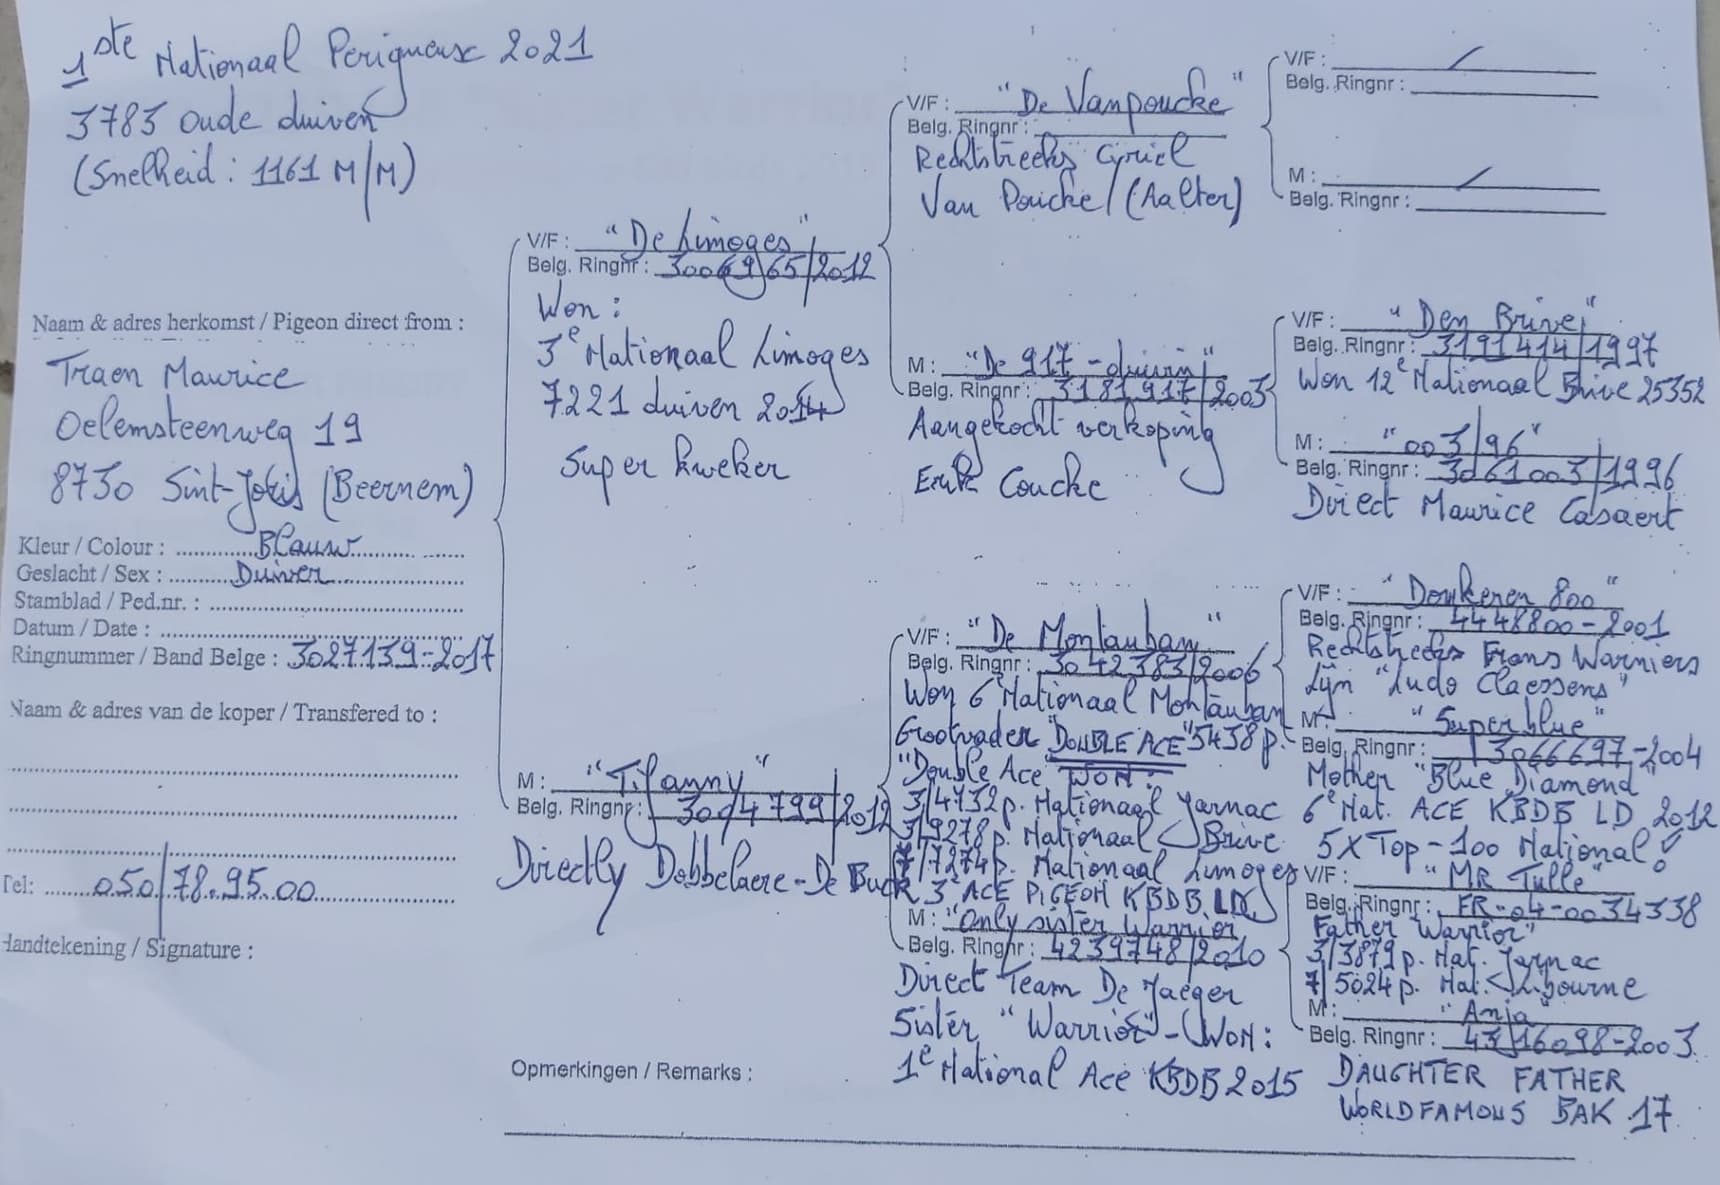 1ste Nationaal Perigueux 2021
3783 oude duiven
(Snelheid : 1161 M/M)
Naam & adres herkomst / Pigeon direct from :
Traen Maurice
Oelemsteenweg 19
8730 Sint-Joris (Beernem)
Kleur / Colour : Blauw
Geslacht / Sex : Duiver
Stamblad / Ped.nr. :
Datum / Date :
Ringnummer / Band Belge : 3027139-2017
Naam & adres van de koper / Transfered to :
Tel: 050/78.95.00
Handtekening / Signature :
V/F : "De Limoges"
Belg. Ringnr : 3006965/2012
Won :
3e Nationaal Limoges
7221 duiven 2014
Super kweker
M : "Tifanny"
Belg. Ringnr : 3004799/2012
Directly Dobbelaere-De Buck
V/F : "De Vanpoucke"
Belg. Ringnr :
Rechtstreeks Cyriel
Van Poucke (Aalter)
M : "De 917-duivin"
Belg. Ringnr : 3181917/2003
Aangekocht verkoping
Erik Coucke
V/F : "De Montauban"
Belg. Ringnr : 3042383/2006
Won 6e Nationaal Montauban
Grootvader "DOUBLE ACE" 5438 p.
"Double Ace" WON :
3/4732p. Nationaal Jarnac
3/9278p. Nationaal Brive
7/7274p. Nationaal Limoges
3e ACE PIGEON KBDB LD
M : "Only sister Warrior
Belg. Ringnr : 4239748/2010
Direct Team De Jaeger
Sister "Warrior" - WON :
1e National Ace KBDB 2015
V/F : /
Belg. Ringnr :
M : /
Belg. Ringnr :
V/F : "Den Brive"
Belg. Ringnr : 3191414/1997
Won 12e Nationaal Brive 25352
M : "003/96"
Belg. Ringnr : 3061003/1996
Direct Maurice Casaert
V/F : "Donkeren 800"
Belg. Ringnr : 4448800-2001
Rechtstreeks Frans Warniers
Lijn "Ludo Claessens"
M : "Superblue"
Belg. Ringnr : 3066697-2004
Mother "Blue Diamond"
6e Nat. ACE KBDB LD 2012
5X Top-100 National !
V/F : "MR Tulle"
Belg. Ringnr : FR-04-0034338
Father "Warrior"
3/3879p. Nat. Jarnac
7/5024p. Nat. Libourne
M : "Anja"
Belg. Ringnr : 4316098-2003
DAUGHTER FATHER
WORLDFAMOUS BAK 17
Opmerkingen / Remarks :